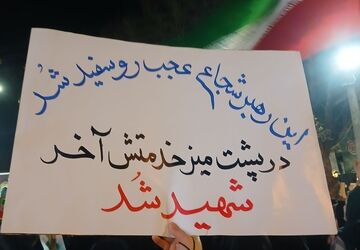 این رهبر شجاع عجب روسفید شُد
در پشت میز خدمتش آخر
شهید شُد